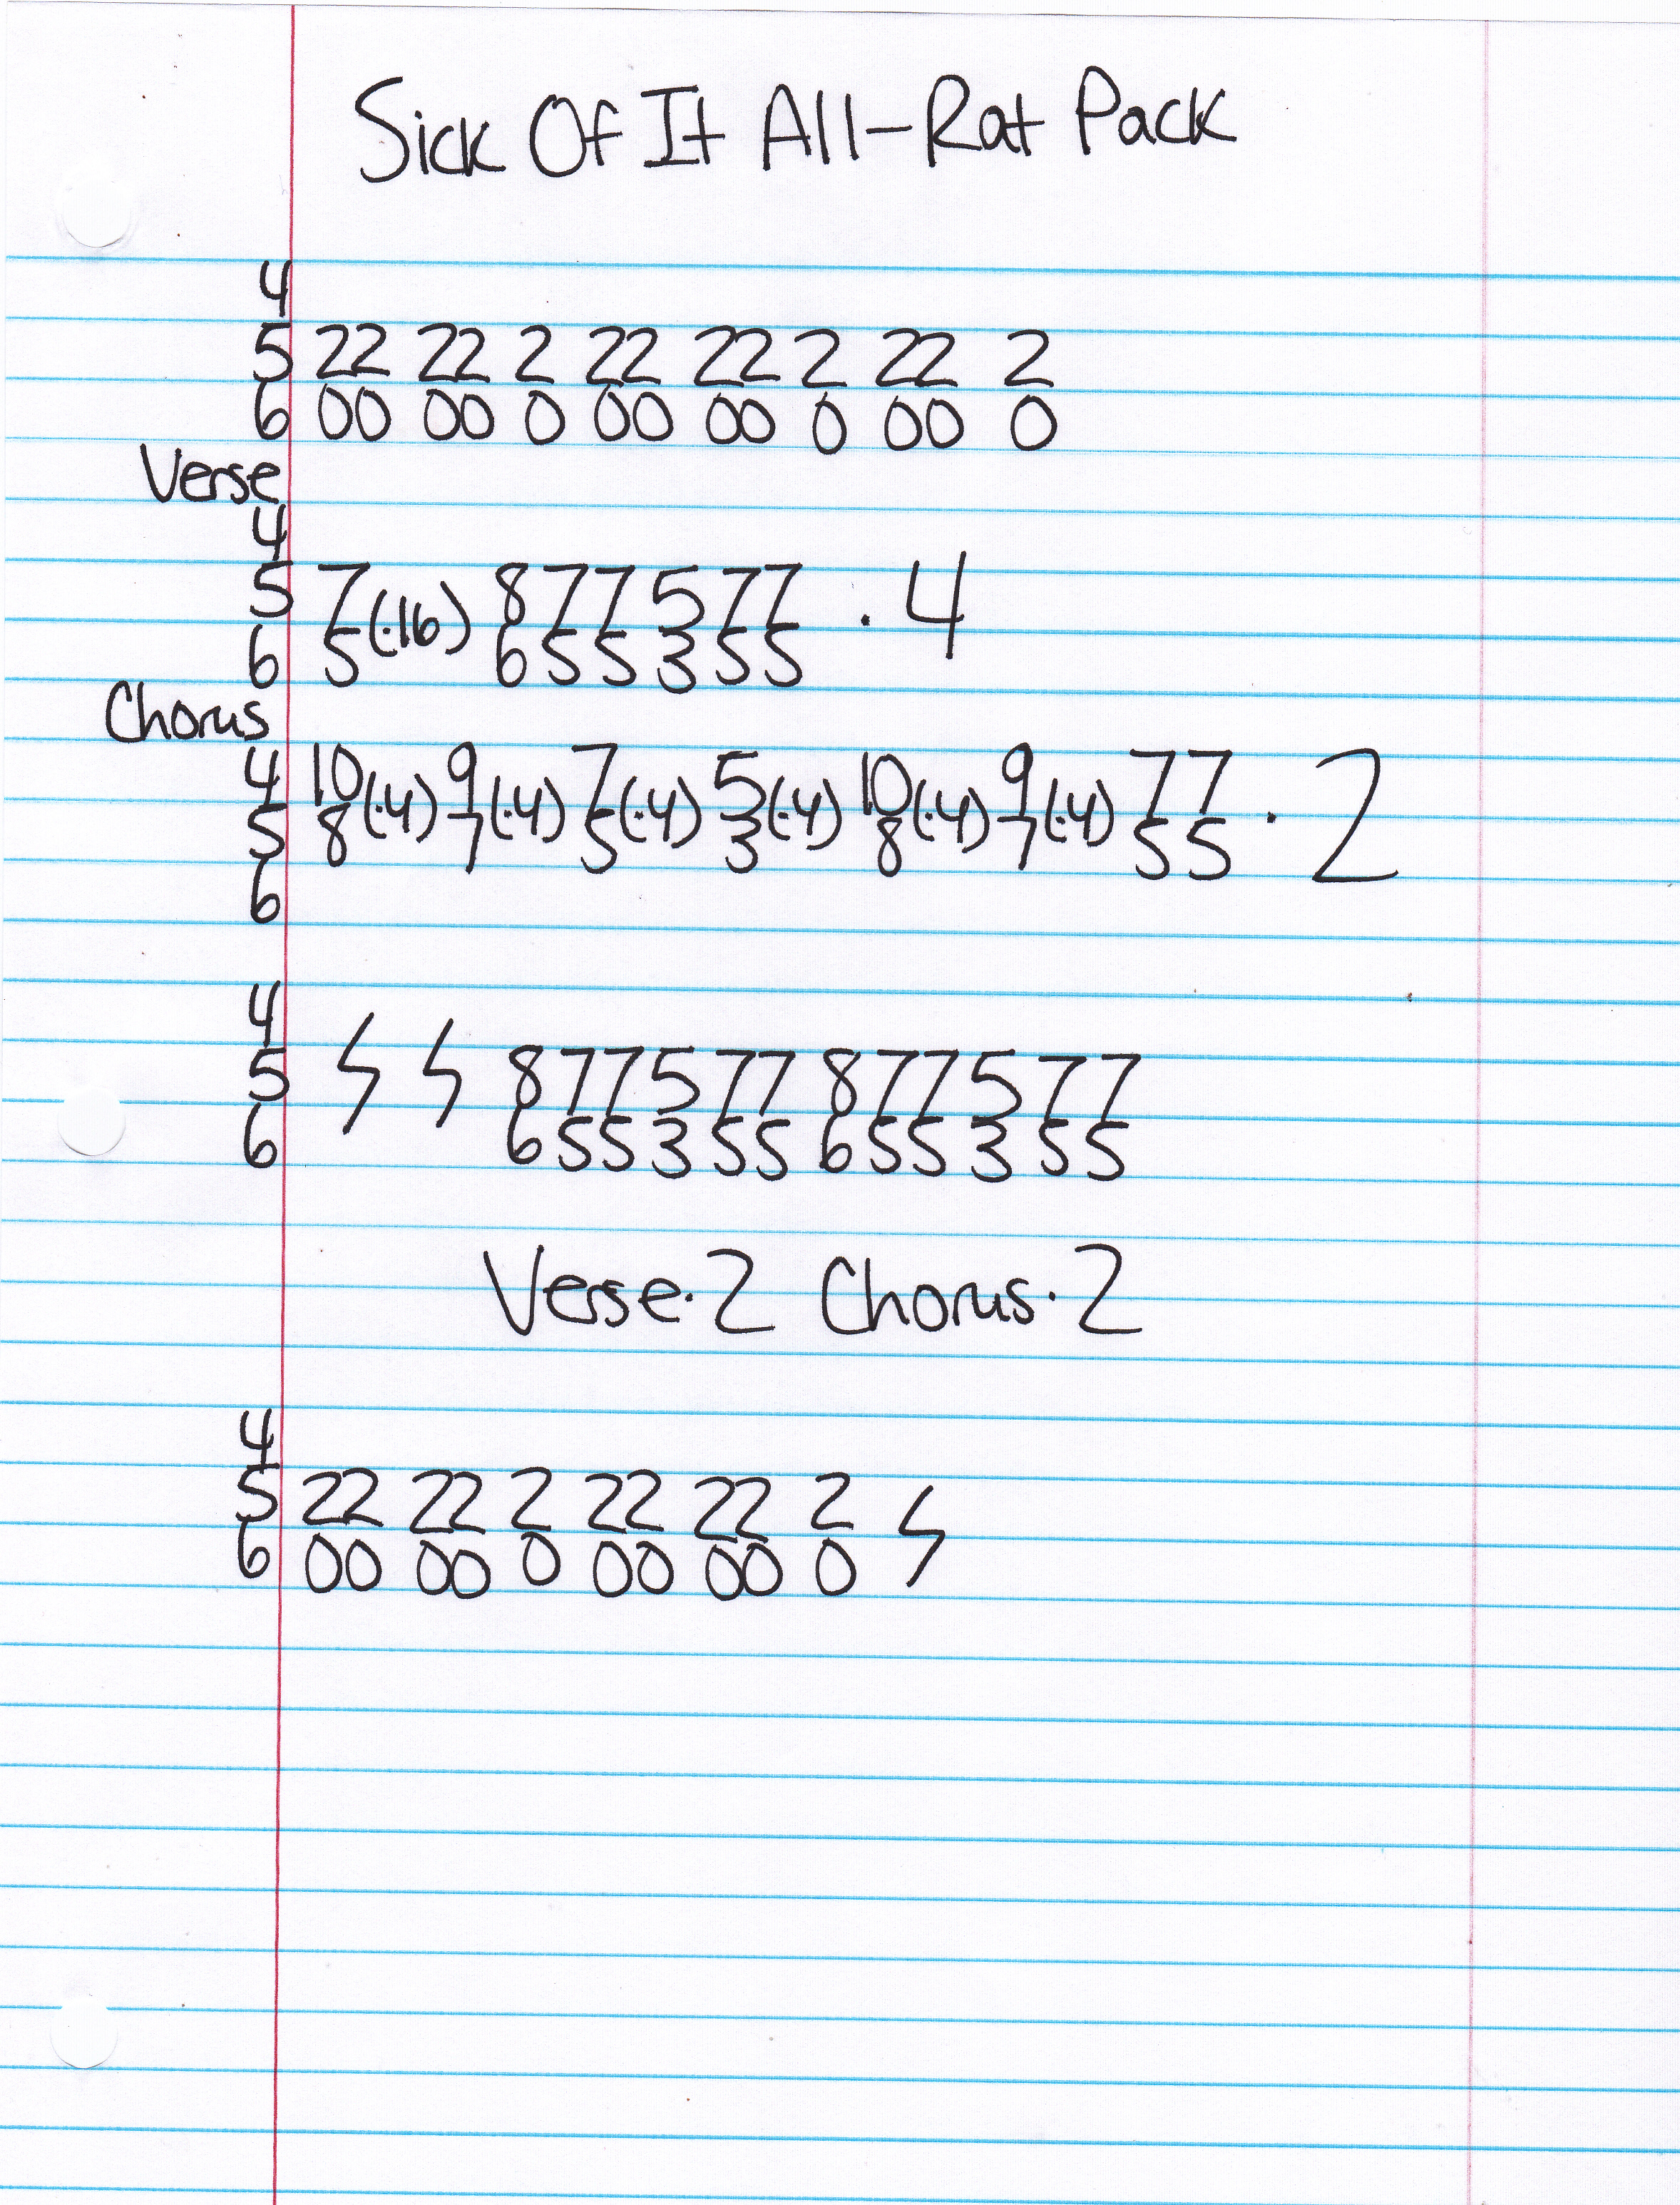 Sick Of It All-Rat Pack
4
5 22 22 2 22 22 2 22 2
6 00 00 0 00 00 0 00 0
Verse
4
5 7(·16) 8 7 7 5 7 7 · 4
6 5 6 5 5 3 5 5
Chorus
4 10(·4) 9(·4) 7(·4) 5(·4) 10(·4) 9(·4) 7 7 · 2
5 8 7 5 3 8 7 5 5
6
4
5 8 7 7 5 7 7 8 7 7 5 7 7
6 6 5 5 3 5 5 6 5 5 3 5 5
Verse·2 Chorus·2
4
5 22 22 2 22 22 2
6 00 00 0 00 00 0